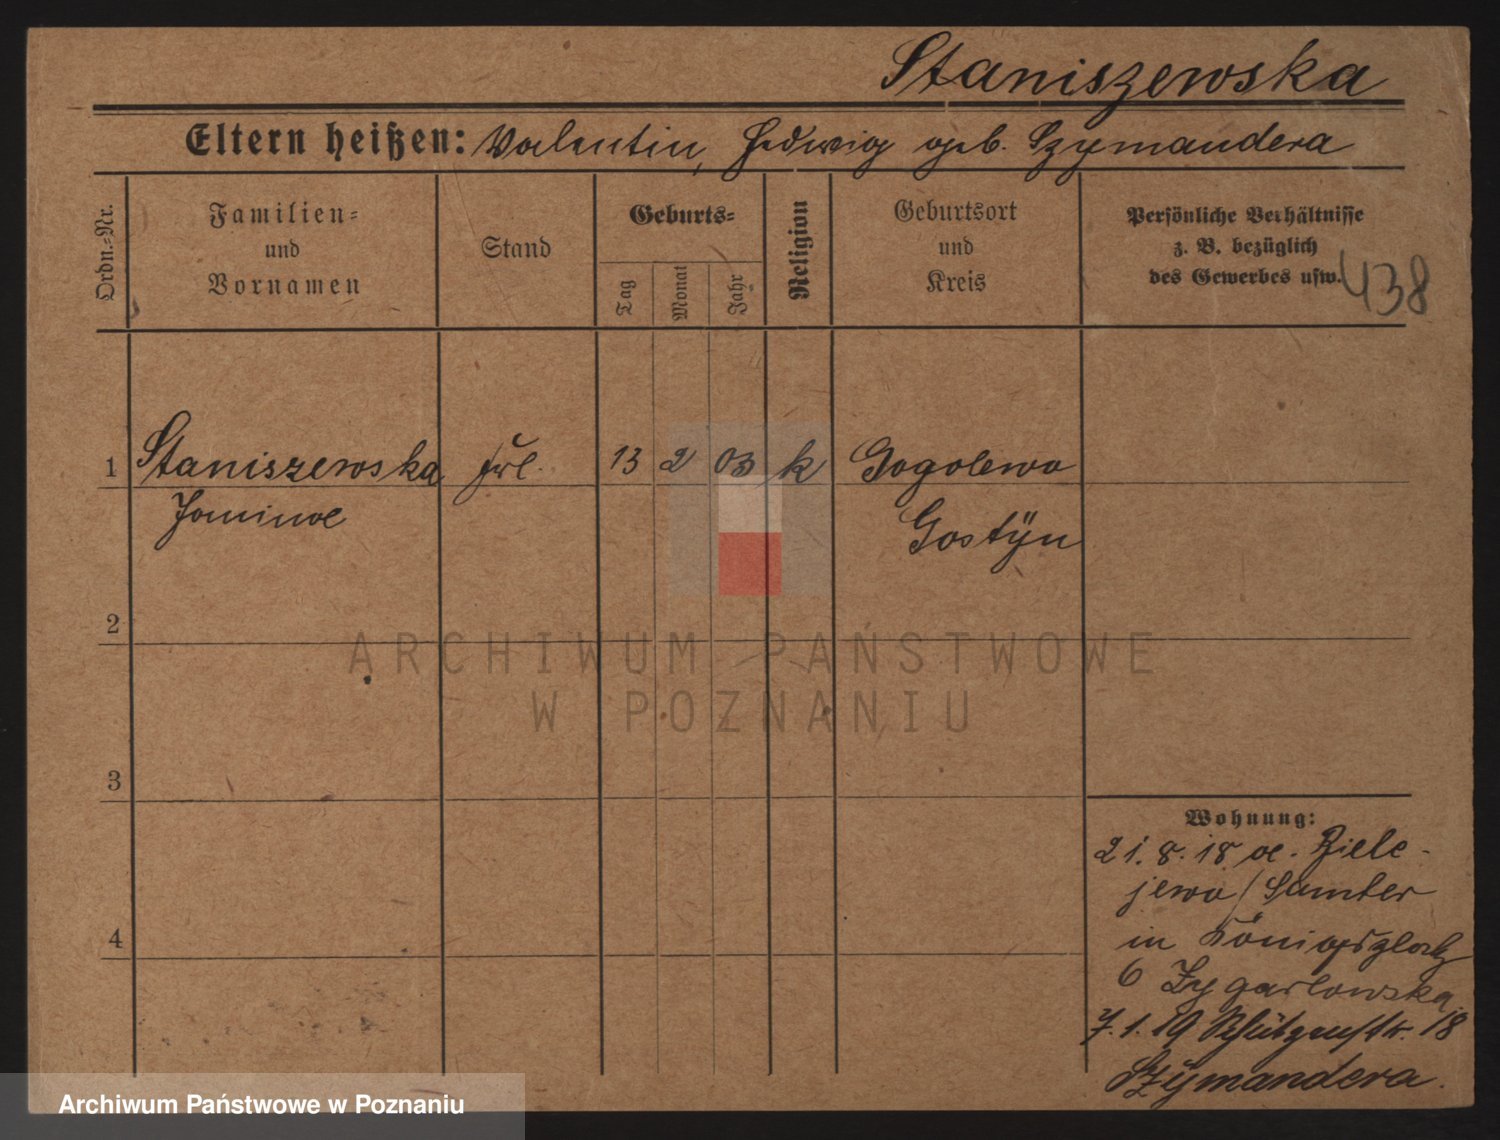 Staniszewska
Eltern heißen: Valentin, Hedwig geb. Szymandera
Ordn.=Nr.
Familien=
und
Vornamen
Stand
Geburts=
Tag
Monat
Jahr
Religion
Geburtsort
und
Kreis
Persönliche Verhältnisse
z. B. bezüglich
des Gewerbes usw.
438
1 Staniszewska frl. 13 2 03 k Gogolewo
Janina
Gostÿn
2
3
4
Wohnung:
21. 8. 18 a. Ziele-
jewo / Samter
in Königsplatz
6 Zygarlowska
7. 1. 19 Schützenstr. 18
Szÿmandera.
ARCHIWUM PAŃSTWOWE
W POZNANIU
Archiwum Państwowe w Poznaniu